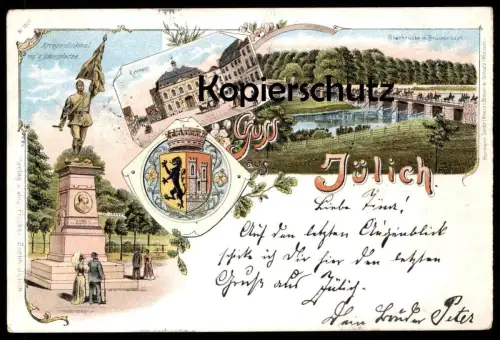 Kriegerdenkmal
auf d. Schlossplatze.
Rathaus
Rurbrücke m. Brückenkopf.
Kopierschutz
Gruss
aus
Jülich.
Liebe Tina!
Auf den letzten Augenblick
schicke ich Dir hier den letzten
Gruß aus Jülich.
Dein Bruder Peter